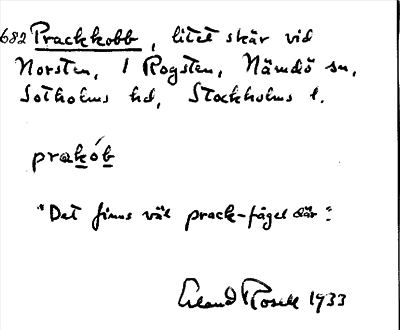 682 Prackkobb, litet skär vid
Norsten, 1 Rogsten, Nämdö sn,
Sotholms hd, Stockholms l.
prakób
"Det finns väl prack-fågel där".
Erland Rosell 1933